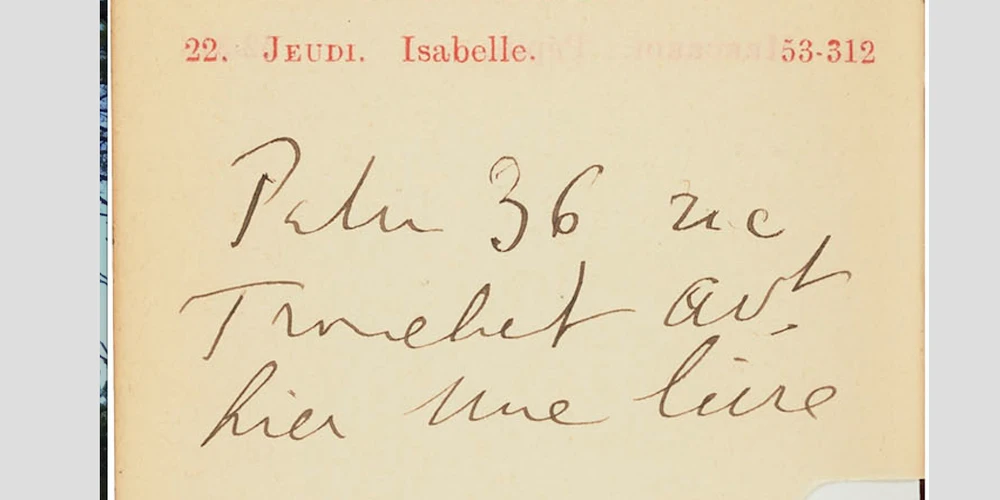 22. JEUDI. Isabelle. 53-312
36 rue
Tronchet avt
hier une livre